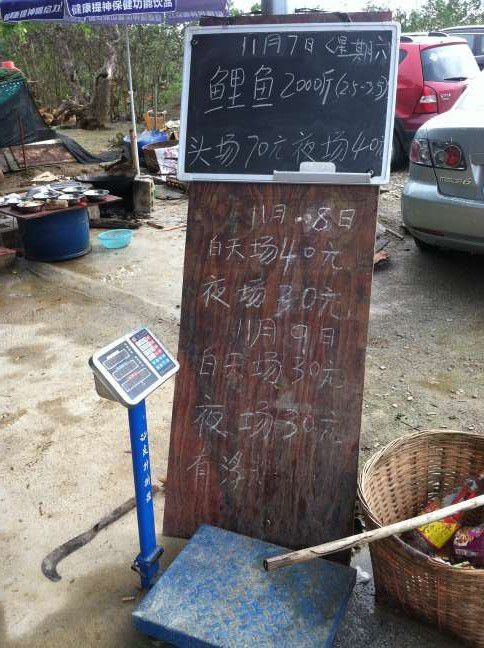 健康提神保健功能饮品
11月7日(星期六
鲤鱼2000斤(2.5-3斤)
头场70元夜场40元
11月8日
白天场40元
夜场30元
11月9日
白天场30元
夜场30元